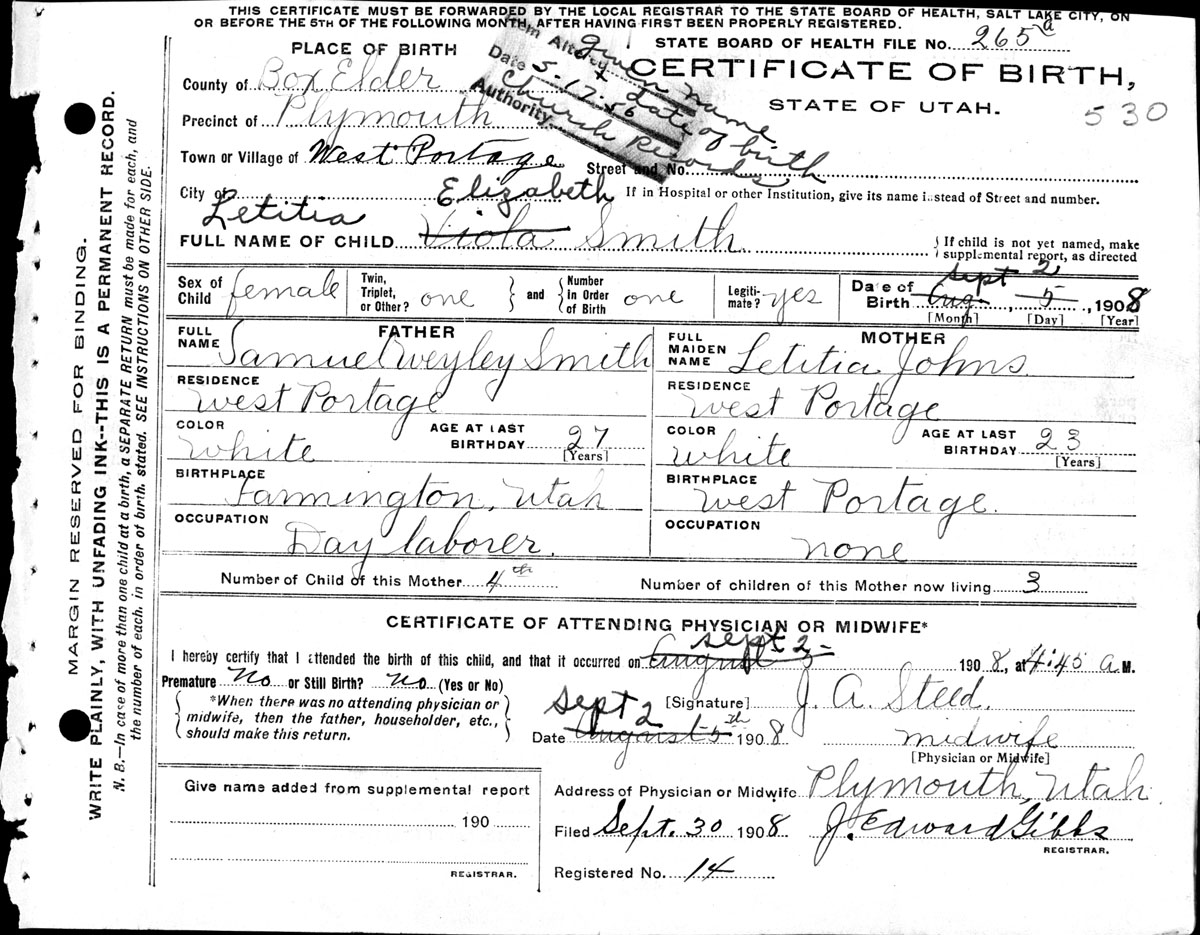 THIS CERTIFICATE MUST BE FORWARDED BY THE LOCAL REGISTRAR TO THE STATE BOARD OF HEALTH, SALT LAKE CITY, ON
OR BEFORE THE 5TH OF THE FOLLOWING MONTH, AFTER HAVING FIRST BEEN PROPERLY REGISTERED.
PLACE OF BIRTH
STATE BOARD OF HEALTH FILE No. 265a
Item Altered Given name
& date of birth
Date 5-17-56
Authority Church Records
CERTIFICATE OF BIRTH,
STATE OF UTAH.
530
County of Box Elder
Precinct of Plymouth
Town or Village of West Portage Street and No.
City of
If in Hospital or other Institution, give its name instead of Street and number.
Letitia Elizabeth
FULL NAME OF CHILD Viola Smith
If child is not yet named, make
supplemental report, as directed
Sex of Child female
Twin, Triplet, or Other? one and Number in Order of Birth one
Legitimate? yes
Sept 2
Date of Birth Aug. 5, 1908
[Month] [Day] [Year]
FATHER
FULL NAME Samuel Weyley Smith
RESIDENCE
West Portage
COLOR
White
AGE AT LAST BIRTHDAY 27
[Years]
BIRTHPLACE
Farmington, Utah
OCCUPATION
Day laborer.
MOTHER
FULL MAIDEN NAME Letitia Johns
RESIDENCE
West Portage
COLOR
White
AGE AT LAST BIRTHDAY 23
[Years]
BIRTHPLACE
West Portage.
OCCUPATION
none
Number of Child of this Mother 4th
Number of children of this Mother now living 3
CERTIFICATE OF ATTENDING PHYSICIAN OR MIDWIFE*
sept 2-
I hereby certify that I attended the birth of this child, and that it occurred on August 5 1908, at 4:45 A.M.
Premature No or Still Birth? No (Yes or No)
*When there was no attending physician or
midwife, then the father, householder, etc.,
should make this return.
[Signature] J. A. Steed.
sept 2
Date August 5th 1908
midwife
[Physician or Midwife]
Give name added from supplemental report
190
REGISTRAR.
Address of Physician or Midwife Plymouth, Utah.
Filed Sept. 30 1908 J. Edward Gibbs
REGISTRAR.
Registered No. 14
MARGIN RESERVED FOR BINDING.
WRITE PLAINLY, WITH UNFADING INK--THIS IS A PERMANENT RECORD.
N. B.—In case of more than one child at a birth, a SEPARATE RETURN must be made for each, and
the number of each, in order of birth, stated. SEE INSTRUCTIONS ON OTHER SIDE.